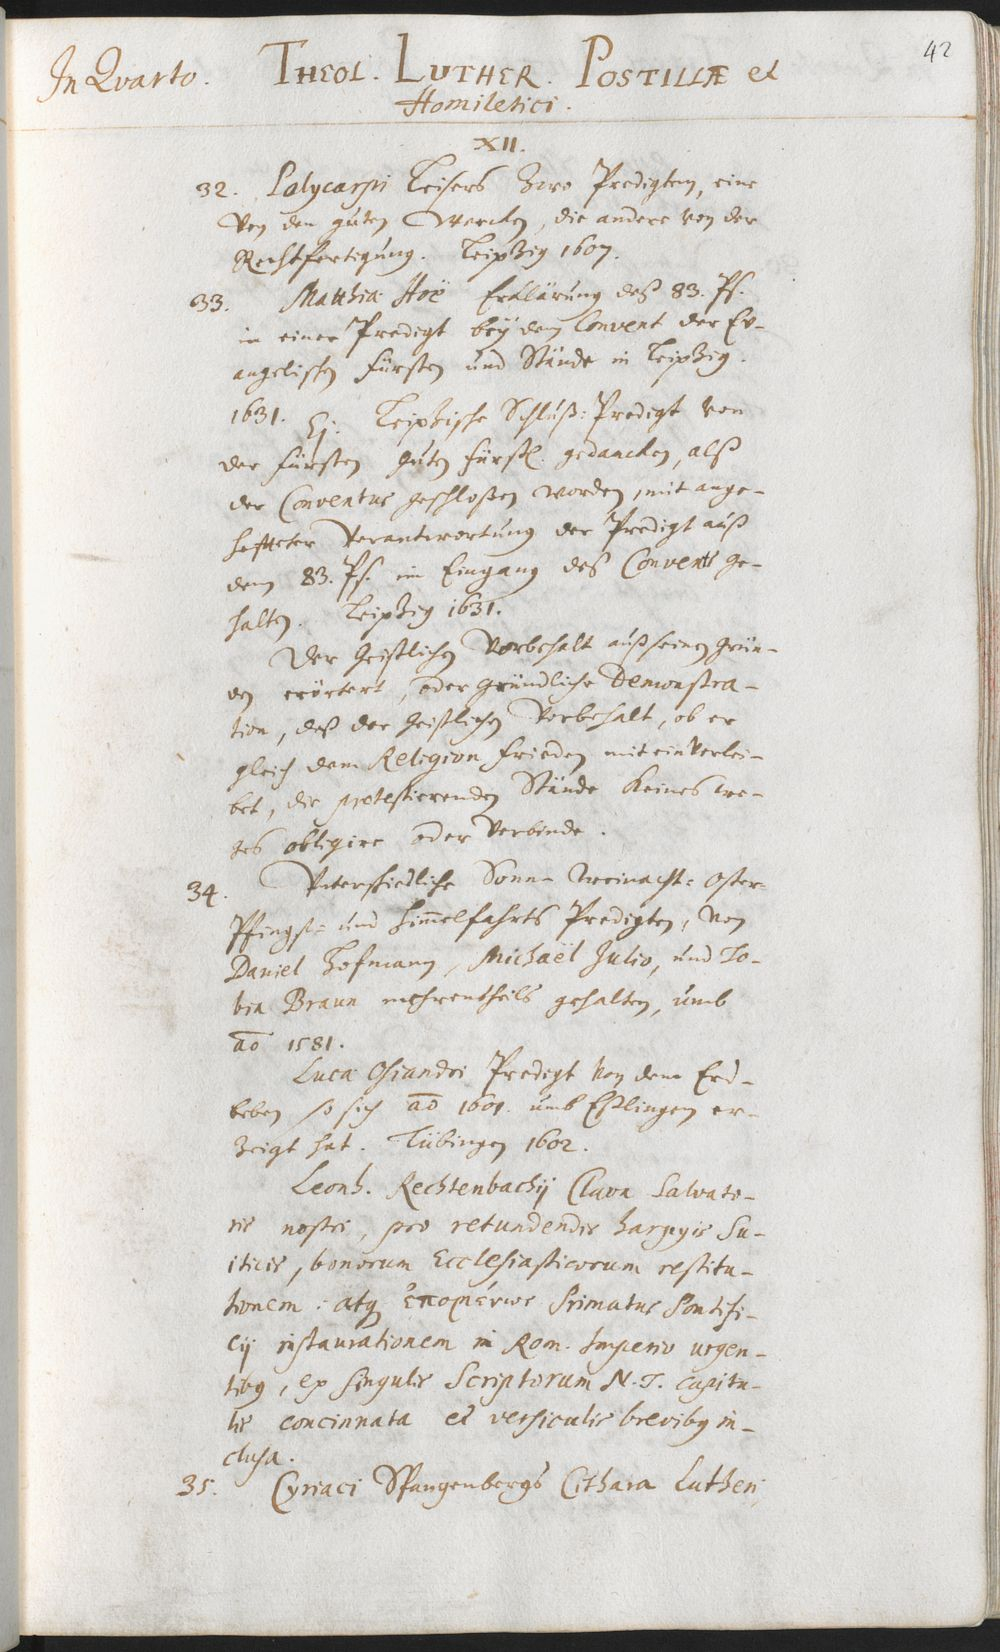 42
In Qvarto. THEOL. LUTHER. POSTILLÆ et
Homiletici.
XII.
32. Polycarpi Leisers Zwo Predigten, eine
von den guten Wercken, die andere von der
Rechtfertigung. Leipzig 1607.
33. Matthiæ Hoë Erklärung deß 83. Ps.
in einer Predigt bey dem Convent der Ev-
angelischen Fürsten und Stände in Leipzig.
1631. Ej. Leipzische Schluß-Predigt von
der Fürsten guten Fürstl. gedancken, alß
der Conventus geschloßen worden, mit ange-
heffteter Verantwortung der Predigt auß
dem 83. Ps. im Eingang deß Convents ge-
halten. Leipzig 1631.
Der Geistlichen Vorbehalt auß seinen Grün-
den erörtert, oder gründliche Demonstra-
tion, daß der Geistlichen Vorbehalt, ob er
gleich dem Religion Frieden mit einverlei-
bet, die protestierenden Stände keines we-
ges obligire oder verbinde.
34. Unterschiedliche Sonn- Weinacht- Oster-
Pfingst- und Himmelfahrts Predigten, von
Daniel Hofmann, Michaël Julio, und To-
bia Braun mehrentheils gehalten, umb
ao 1581.
Lucæ Osiandri Predigt von dem Erd-
beben so sich ao 1601. umb Eßlingen er-
zeigt hat. Tübingen 1602.
Leonh. Rechtenbachij Clava Salvato-
ris nostri, pro retundendis harpyis Su-
iticis, bonorum Ecclesiasticorum restitu-
tionem: atq ἑπομένως Primatus Pontifi-
cij instaurationem in Rom. Imperio urgen-
tibq, ex singulis Scriptorum N. T. capitu-
lis concinnata et versiculis brevibq in-
clusa.
35. Cyriaci Spangenbergs Cithara Lutheri,